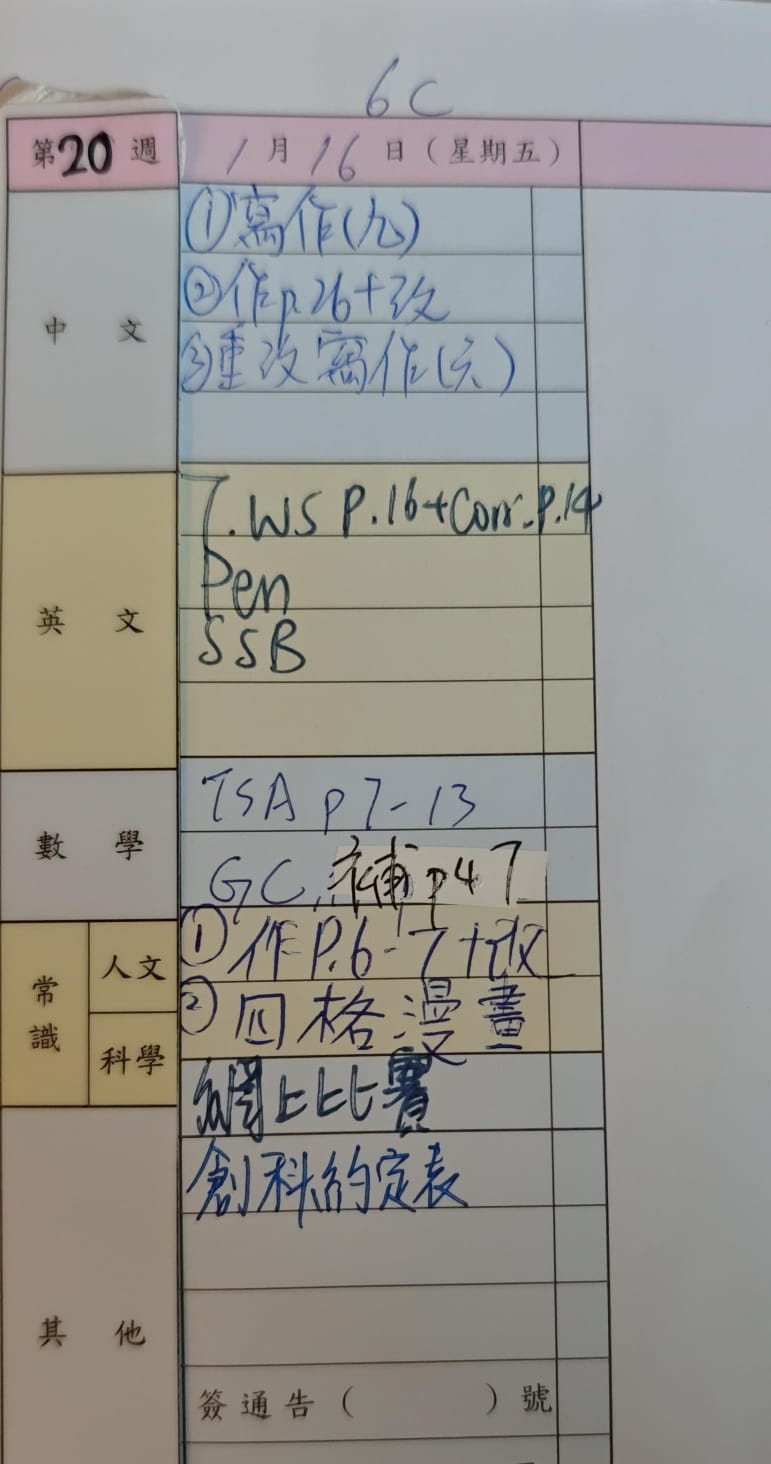 6C
第20週 1月16日(星期五)
中文
①寫作(九)
②作p.26+改
③重改寫作(六)
英文
T.WS P.16+Corr.P.14
Pen
SSB
數學
TSA p7-13
GC 補p47
常識
人文
科學
①作P.6-7+改
②四格漫畫
網上比賽
創科約定表
其他
簽通告( )號